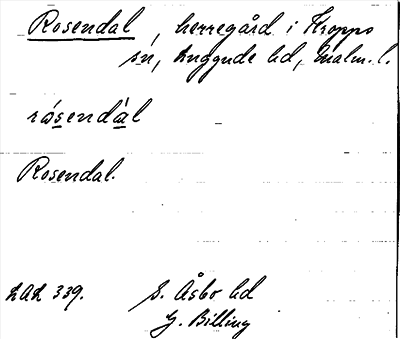 Rosendal, herregård i Kroppo
sn, Luggude hd, Malm. l.
rósendál
Rosendal.
LAL 339. S. Åsbo hd
G. Billing